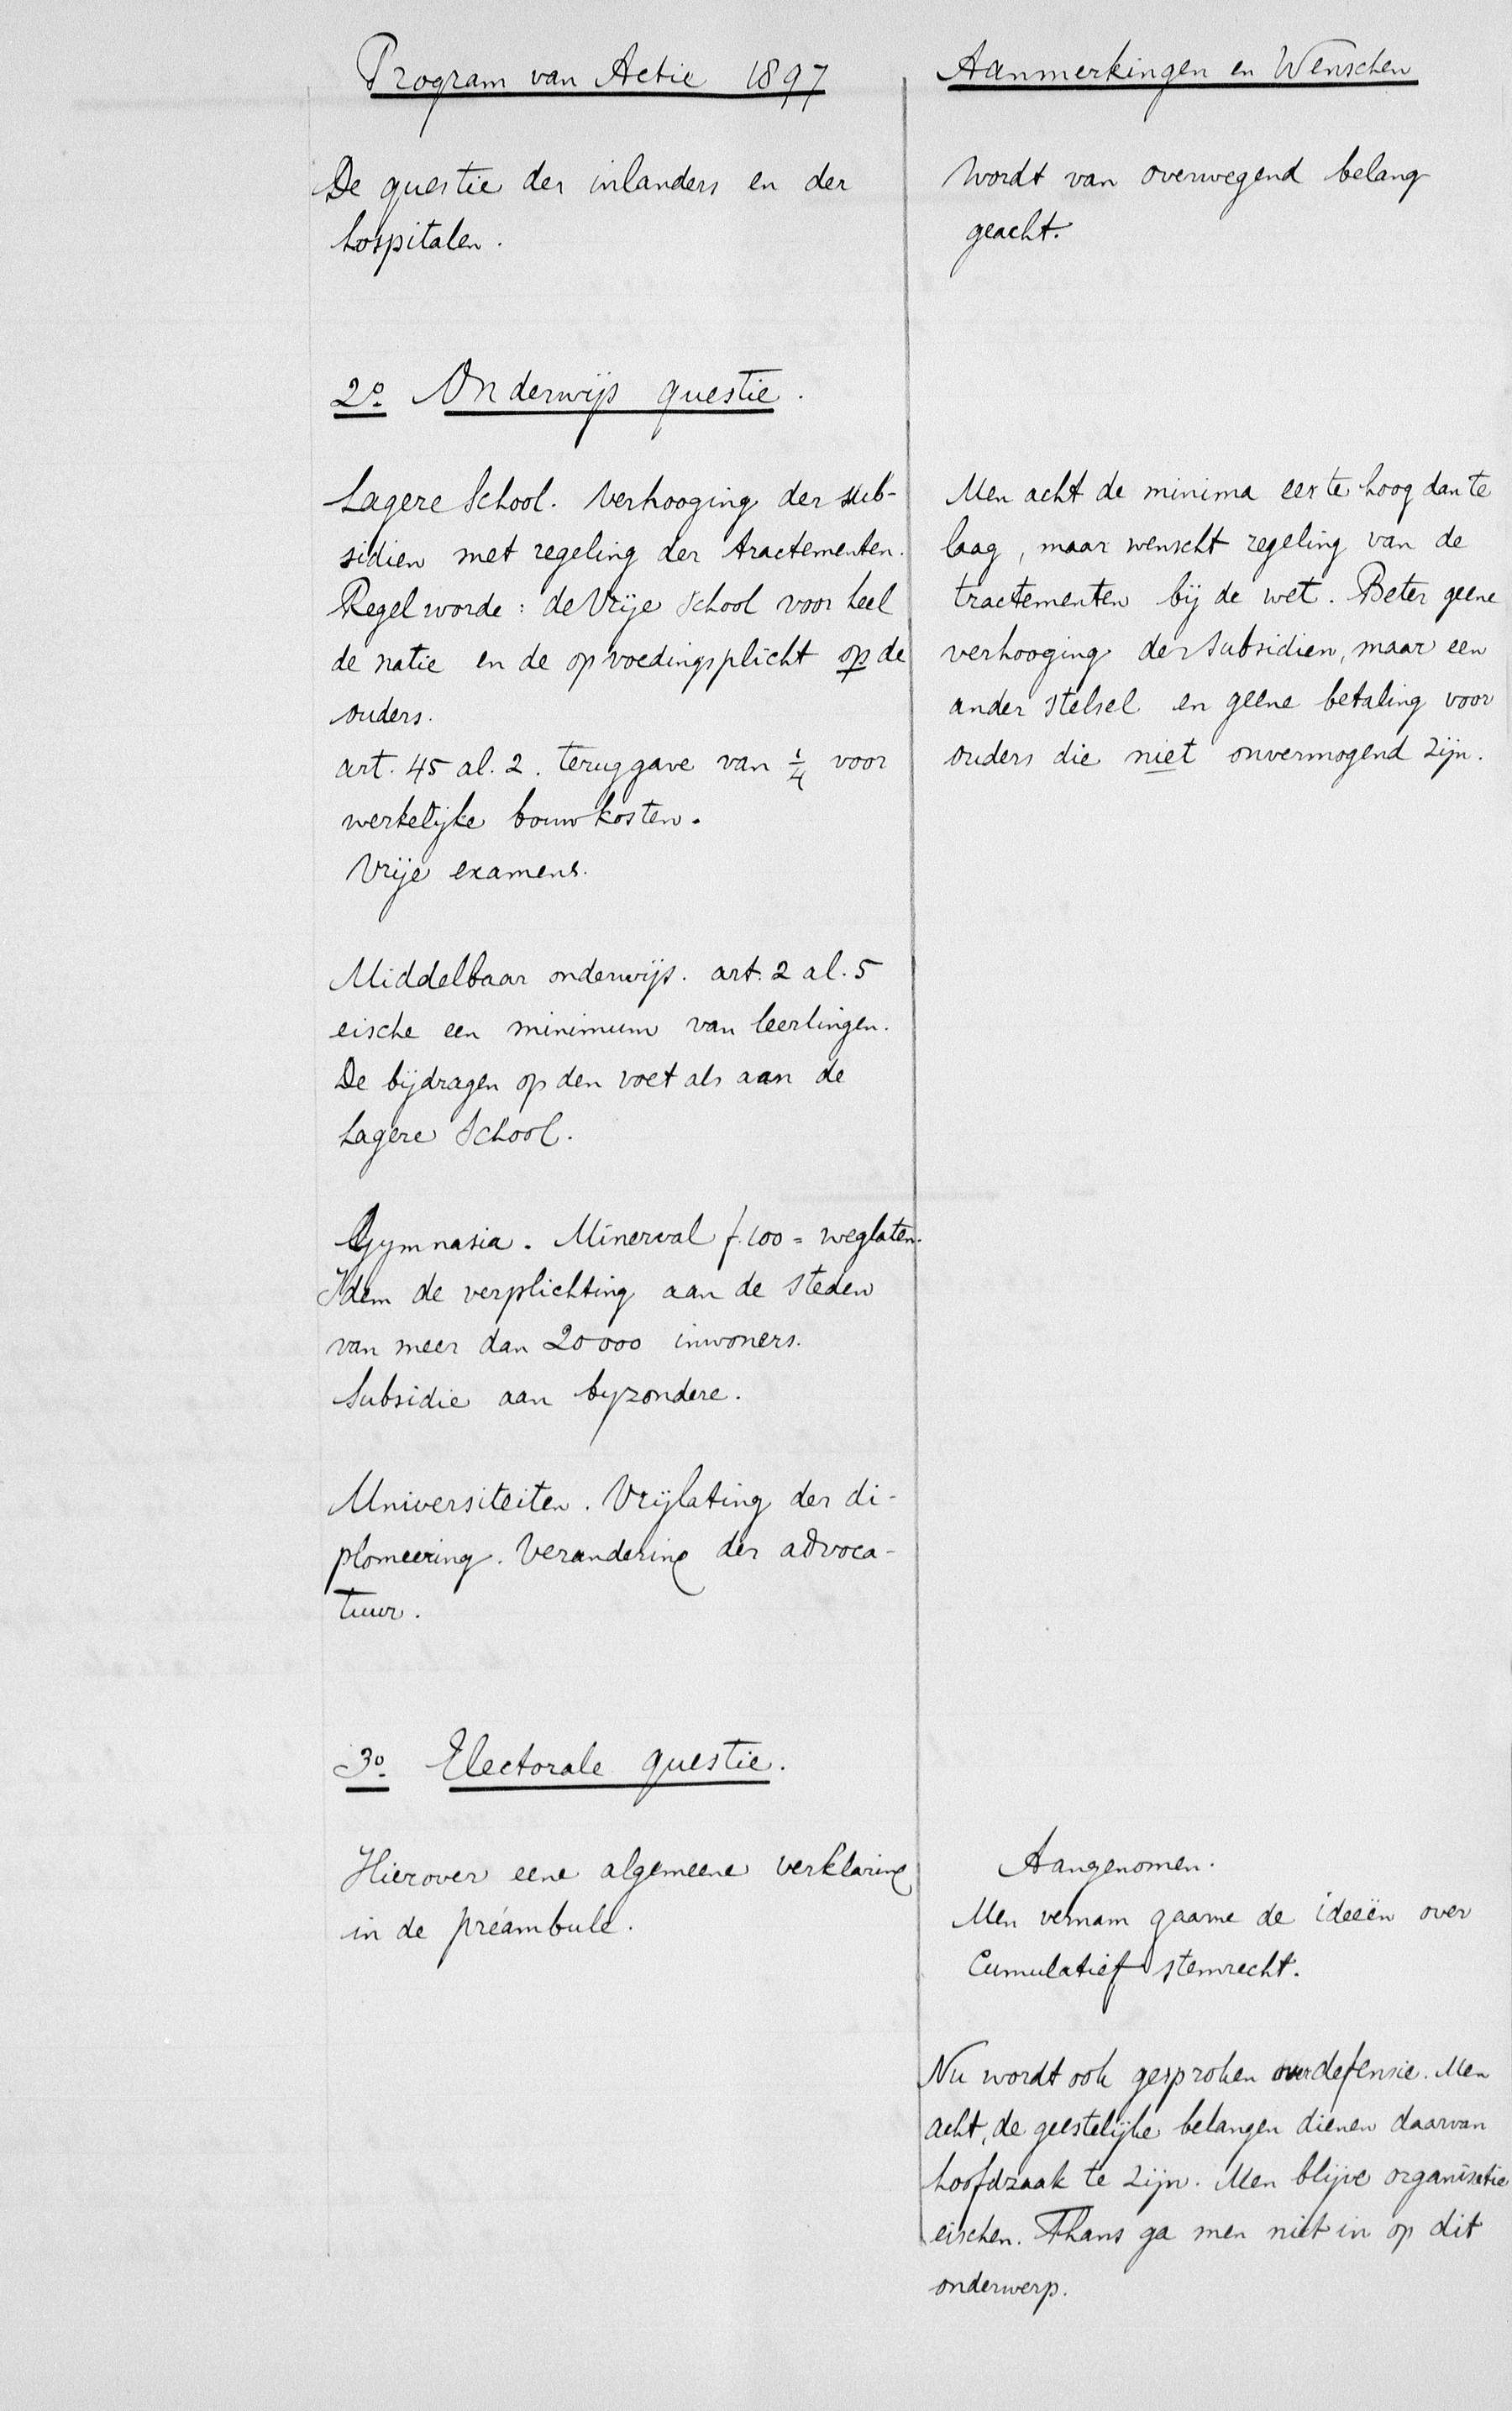 Program van Actie 1897
De questie der inlanders en der
hospitalen.
2o. Onderwijs questie.
Lagere School. Verhooging der sub-
sidien met regeling der tractementen.
Regel worde: de Vrije School voor heel
de natie en de opvoedingsplicht op de
ouders.
art. 45 al. 2. teruggave van 1/4 voor
werkelijke bouwkosten.
Vrije examens.
Middelbaar onderwijs. art. 2 al. 5
eische een minimum van leerlingen.
De bijdragen op den voet als aan de
Lagere School.
Gymnasia. Minerval f. 100 = weglaten.
Idem de verplichting aan de steden
van meer dan 20000 inwoners.
Subsidie aan byzondere.
Universiteiten. Vrijlating der di-
plomeering. Verandering der advoca-
tuur.
3o. Electorale questie.
Hierover eene algemeene verklaring
in de préambule.
Aanmerkingen en Wenschen
Wordt van overwegend belang
geacht.
Men acht de minima eer te hoog dan te
laag, maar wenscht regeling van de
tractementen bij de wet. Beter geene
verhooging der subsidien, maar een
ander stelsel en geene betaling voor
ouders die niet onvermogend zijn.
Aangenomen.
Men vernam gaarne de ideeën over
Cumulatief stemrecht.
Nu wordt ook gesproken over defensie. Men
acht, de geestelijke belangen dienen daarvan
hoofdzaak te zijn. Men blijve organisatie
eischen. Thans ga men niet in op dit
onderwerp.